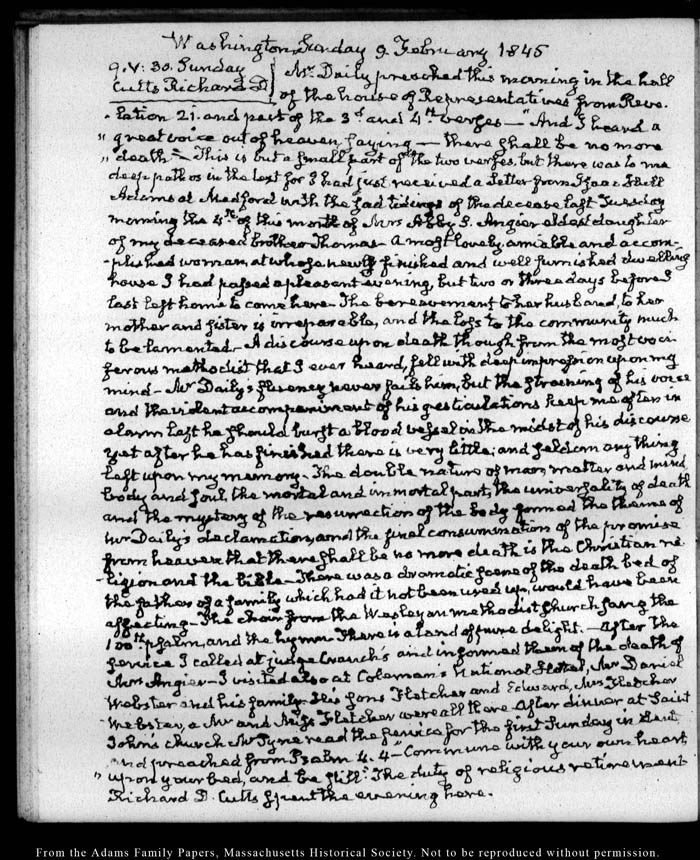 Washington, Sunday 9 February 1845
9. V: 30. Sunday
Cutts Richard D
Mr. Daily preached this morning in the hall
of the house of Representatives from Reve-
-lation 21. and part of the 3d. and 4th. verses — "And I heard a
" great voice out of heaven saying — there shall be no more
" death" — This is but a small part of the two verses, but there was to me
deep pathos in the text for I had just received a Letter from Isaac Hull
Adams at Medford with the sad tidings of the decease last Tuesday
morning the 4th. of this month of Mrs Abby S. Angier eldest daughter
of my deceased brother Thomas — A most lovely, amiable and accom-
-plished woman, at whose newly finished and well furnished dwelling
house I had passed a pleasant evening, but two or three days before I
last left home to come here. The bereavement to her husband, to her
mother and sister is irreparable, and the loss to the community much
to be lamented — A discourse upon death though from the most voci-
ferous methodist that I ever heard, fell with deep impression upon my
mind — Mr Daily's fluency never fails him, but the straining of his voice
and the violent accompaniment of his gesticulations keep me often in
alarm lest he should burst a blood vessel in the midst of his discourse
yet after he has finished there is very little, and seldom any thing
left upon my memory. The double nature of man, matter and mind,
body and soul, the mortal and immortal part, the universality of death
and the mystery of the resurrection of the body formed the theme of
Mr Daily's declamation, and the final consummation of the promise
from heaven that there shall be no more death is the Christian re-
-ligion and the bible — There was a dramatic scene of the death bed of
the father of a family which had it not been used up, would have been
affecting — The choir from the Wesleyan methodist Church sang the
100th psalm, and the hymn There is a land of pure delight. — After the
service I called at judge Cranch's and informed them of the death of
Mrs Angier — I visited also at Coleman's National Hotel, Mr Daniel
Webster and his family. His sons Fletcher and Edward, Mrs Fletcher
Webster, a Mr and Miss Fletcher were all there. After dinner at Saint
John's church Mr Pyne read the service for the first Sunday in Lent,
and preached from Psalm 4. 4 — "Commune with your own heart,
" upon your bed, and be still". The duty of religious retirement
Richard D. Cutts spent the evening here.
From the Adams Family Papers, Massachusetts Historical Society. Not to be reproduced without permission.